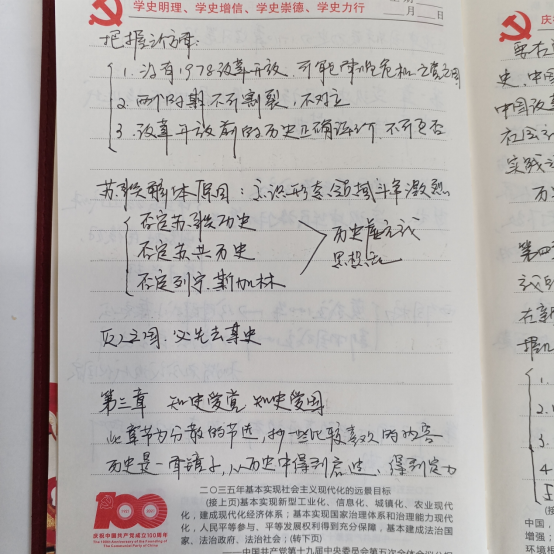 学史明理、学史增信、学史崇德、学史力行
月 日
把握三个方面:
1. 没有1978改革开放,可能面临危机 亡党亡国
2. 两个时期不可割裂,不对立
3. 改革开放前的历史正确评价,不可否
苏联解体原因:意识形态领域斗争激烈
否定苏联历史
否定苏共历史
否定列宁、斯大林
历史虚无主义
思想混乱
灭人之国,必先去其史
第三章 知史爱党 知史爱国
此章节为分散的节选,抄一些比较喜欢的内容
历史是一面镜子,从历史中得到启迪,得到定力
二〇三五年基本实现社会主义现代化的远景目标
(接上页)基本实现新型工业化、信息化、城镇化、农业现代
化,建成现代化经济体系;基本实现国家治理体系和治理能力现代
化,人民平等参与、平等发展权利得到充分保障,基本建成法治国
家、法治政府、法治社会;(转下页)
100
庆祝中国共产党成立100周年
The 100th Anniversary of the Founding of
The Communist Party of China
庆
要在
史,中国
中国改革
社会主
实践
历
第四
在新
1.
2.
3
4
5
中国,
增强;